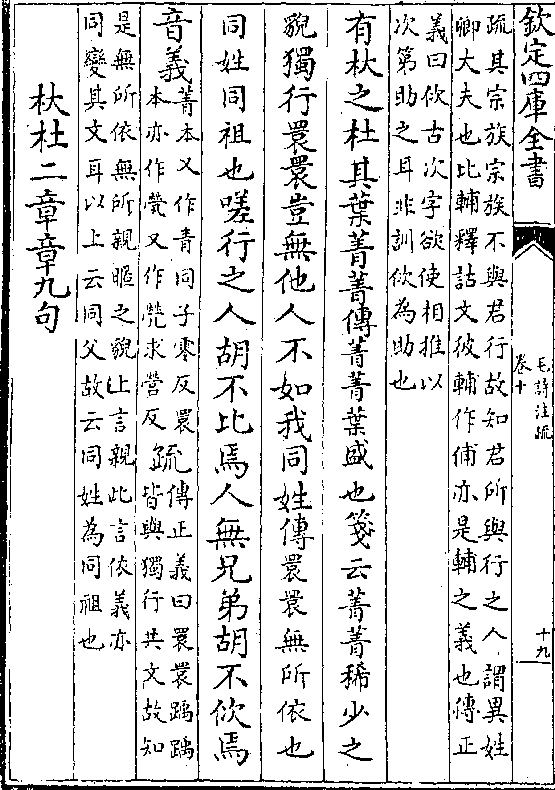 欽定四庫全書
毛詩注疏
卷十
十九
疏其宗族宗族不與君行故知君所與行之人謂異姓
卿大夫也比輔釋詁文彼輔作俌亦是輔之義也傳正
義曰佽古次字欲使相推以
次第助之耳非訓佽為助也
有杕之杜其葉菁菁傳菁菁葉盛也箋云菁菁稀少之
貌獨行睘睘豈無他人不如我同姓傳睘睘無所依也
同姓同祖也嗟行之人胡不比焉人無兄弟胡不佽焉
音義菁本又作青同子零反睘
本亦作煢又作㷀求營反
疏傳正義曰睘睘踽踽
皆與獨行共文故知
是無所依無所親暱之貌上言親此言依義亦
同變其文耳以上云同父故云同姓為同祖也
杕杜二章章九句